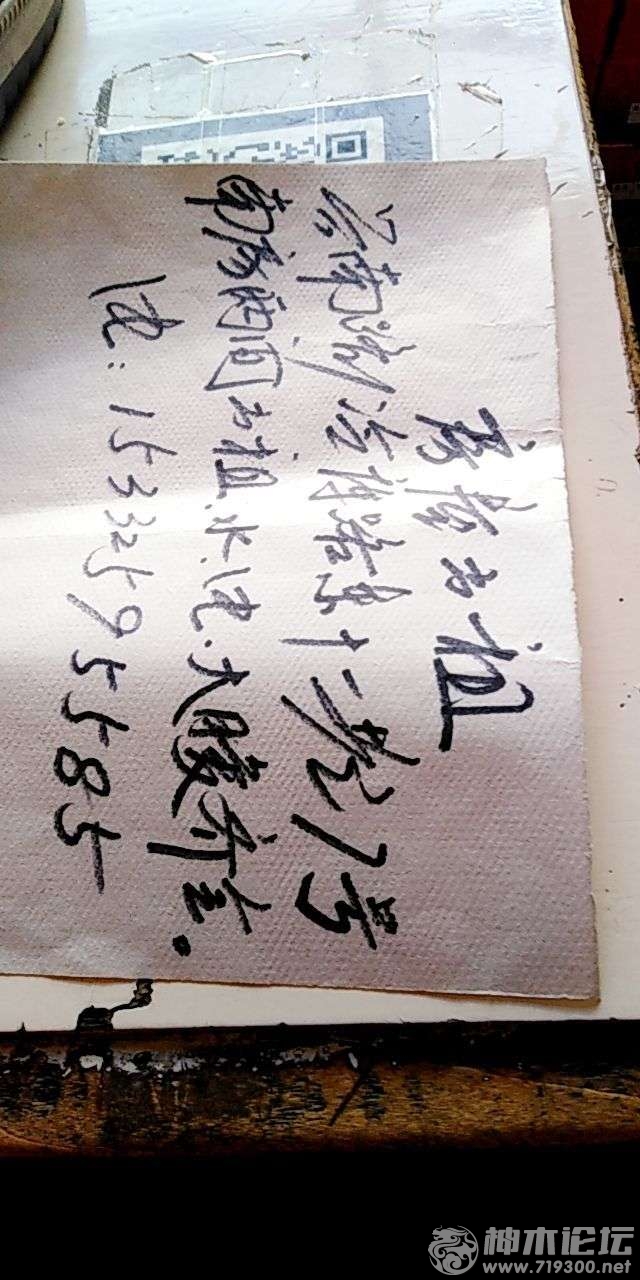 房屋出租
十二巷1号
南房两间出租,水、电、大暖齐全。
电:15332595585
神木论坛
www.719300.net